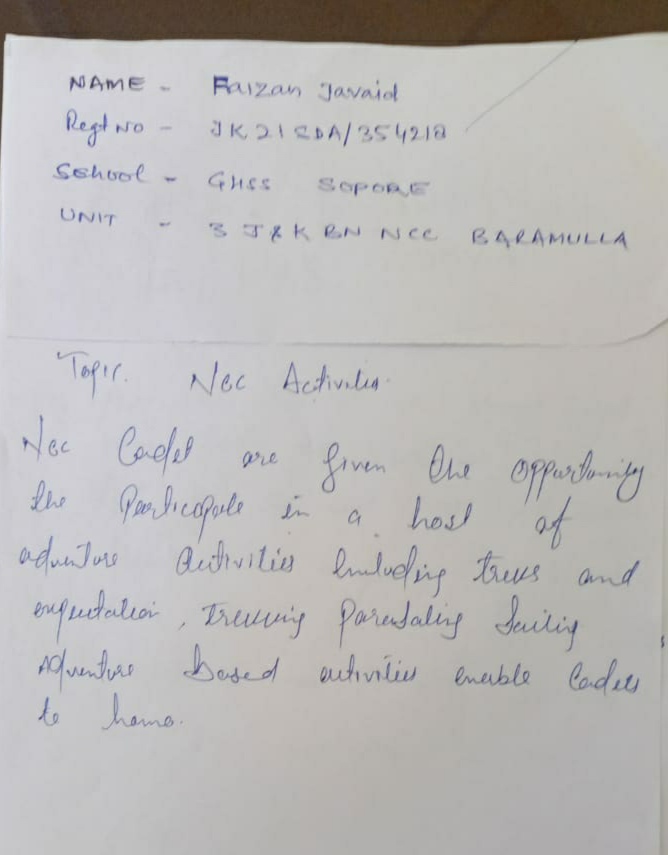 NAME - Faizan Javaid
Regt No - JK21SDA/354218
School - GHSS SOPORE
UNIT - 3 J&K BN NCC BARAMULLA
Topic. Ncc Activities
Ncc Cadet are given the opportunity
the Participate in a host of
adventure activities Including treks and
, Trekking Parasailing Sailing
Adventure based activities enable Cadets
to